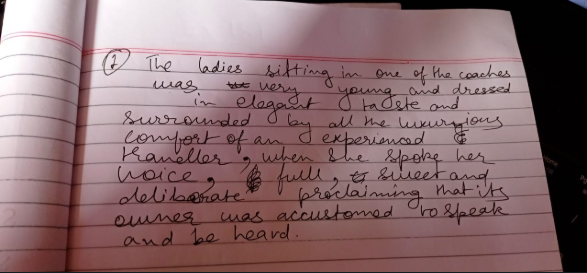 ② The ladies sitting in one of the coaches
was very young and dressed
in elegant taste and
surrounded by all the luxurious
comfort of an experienced
traveller, when she spoke her
voice, full, sweet and
deliberate proclaiming that its
owner was accustomed to speak
and be heard.